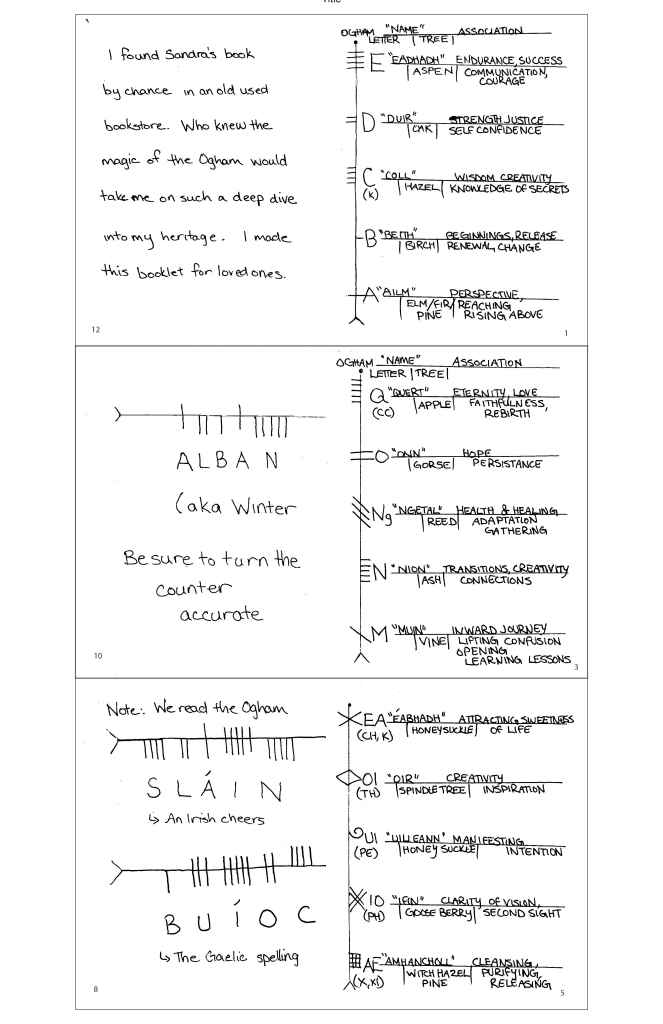 Title
I found Sandra's book
by chance in an old used
bookstore. Who knew the
magic of the Ogham would
take me on such a deep dive
into my heritage. I made
this booklet for loved ones.
12
OGHAM "NAME" ASSOCIATION
LETTER | TREE |
E "EADHADH" ENDURANCE, SUCCESS
ASPEN | COMMUNICATION,
COURAGE
D "DUIR" STRENGTH JUSTICE
OAK | SELF CONFIDENCE
C "COLL" WISDOM CREATIVITY
(K) HAZEL | KNOWLEDGE OF SECRETS
B "BEITH" BEGINNINGS, RELEASE
BIRCH | RENEWAL, CHANGE
A "AILM" PERSPECTIVE,
ELM/FIR/ REACHING
PINE | RISING ABOVE
1
ALBAN
(aka Winter
Be sure to turn the
counter
accurate
10
OGHAM "NAME" ASSOCIATION
LETTER | TREE |
Q "QUERT" ETERNITY, LOVE
(CC) APPLE | FAITHFULNESS,
REBIRTH
O "ONN" HOPE
GORSE | PERSISTANCE
Ng "NGETAL" HEALTH & HEALING
REED | ADAPTATION
GATHERING
N "NION" TRANSITIONS, CREATIVITY
ASH | CONNECTIONS
M "MUIN" INWARD JOURNEY
VINE | LIFTING CONFUSION
OPENING
LEARNING LESSONS
3
Note: We read the Ogham
SLÁIN
↳ An Irish cheers
BUÍOC
↳ The Gaelic spelling
8
EA "ÉABHADH" ATTRACTING SWEETNESS
(CH, K) HONEYSUCKLE | OF LIFE
OI "OIR" CREATIVITY
(TH) SPINDLE TREE | INSPIRATION
UI "UILLEANN" MANIFESTING
(PE) HONEY SUCKLE | INTENTION
IO "IFIN" CLARITY OF VISION,
(PH) GOOSE BERRY | SECOND SIGHT
AE "AMHANCHOLL" CLEANSING,
(X, XI) WITCH HAZEL | PURIFYING,
PINE | RELEASING
5